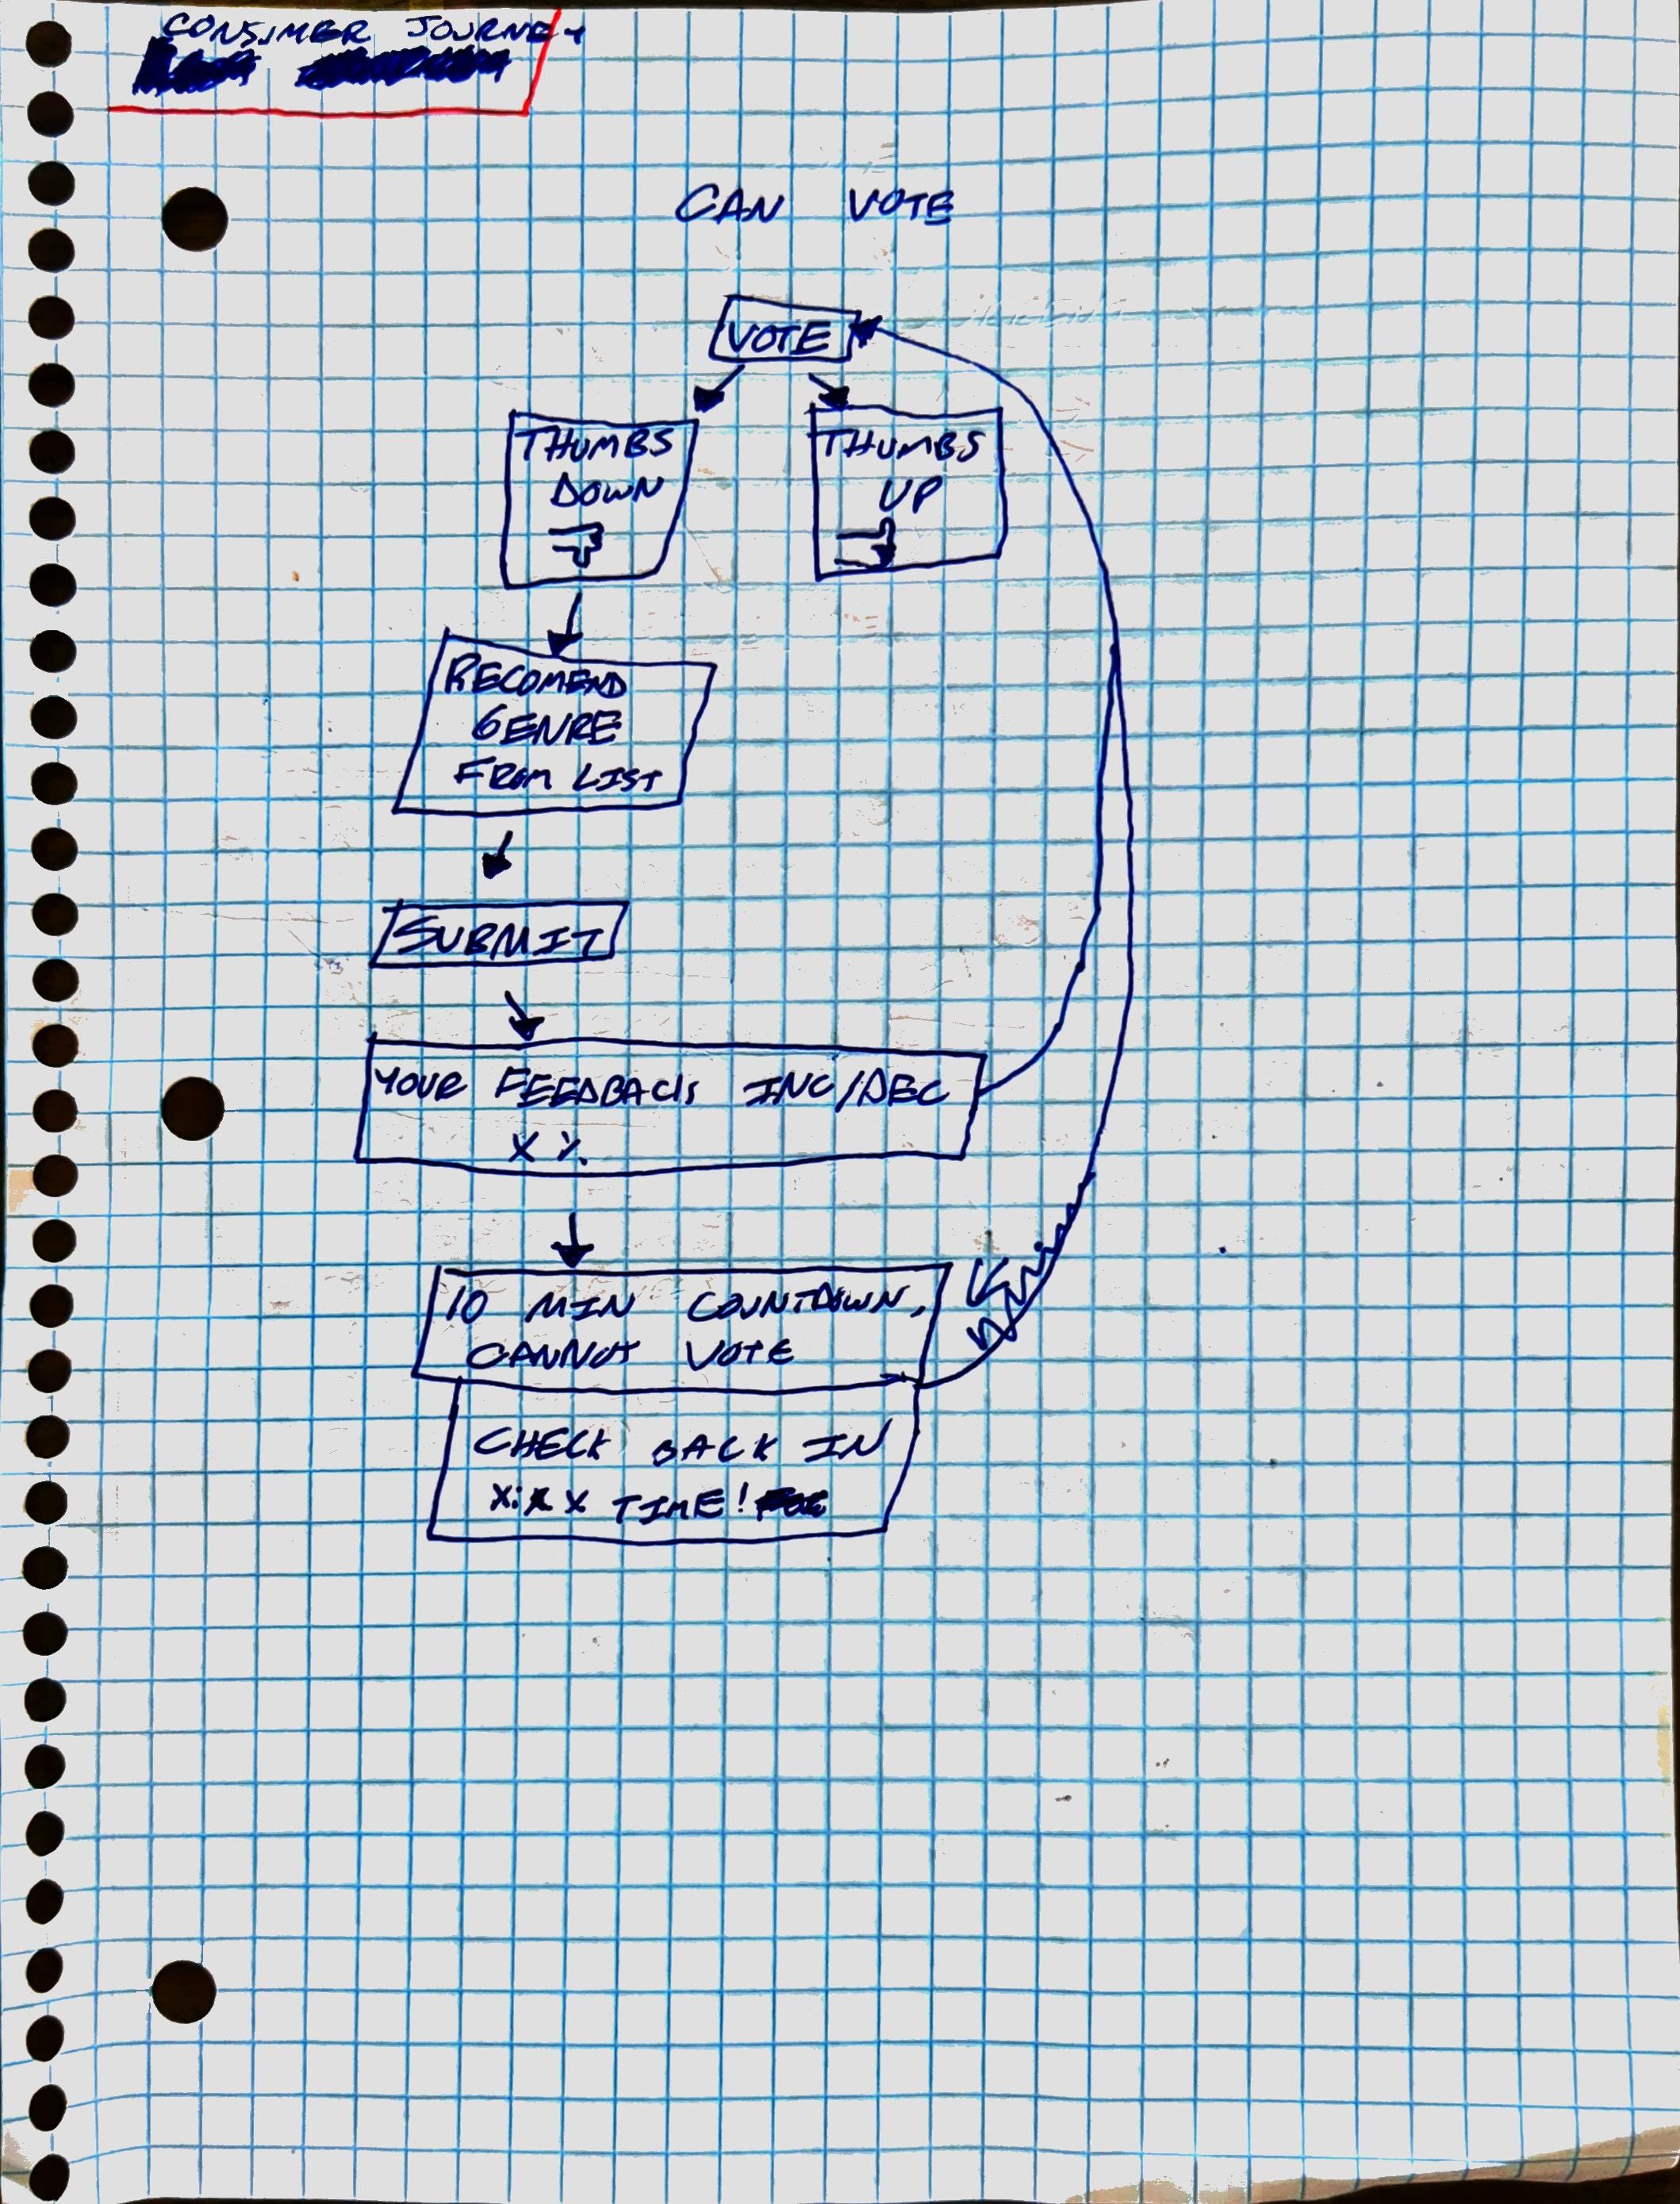 CONSUMER JOURNEY
CAN VOTE
VOTE
THUMBS
DOWN
THUMBS
UP
RECOMEND
GENRE
FROM LIST
SUBMIT
YOUR FEEDBACK INC/DEC
X %
10 MIN COUNTDOWN,
CANNOT VOTE
CHECK BACK IN
X:XX TIME!